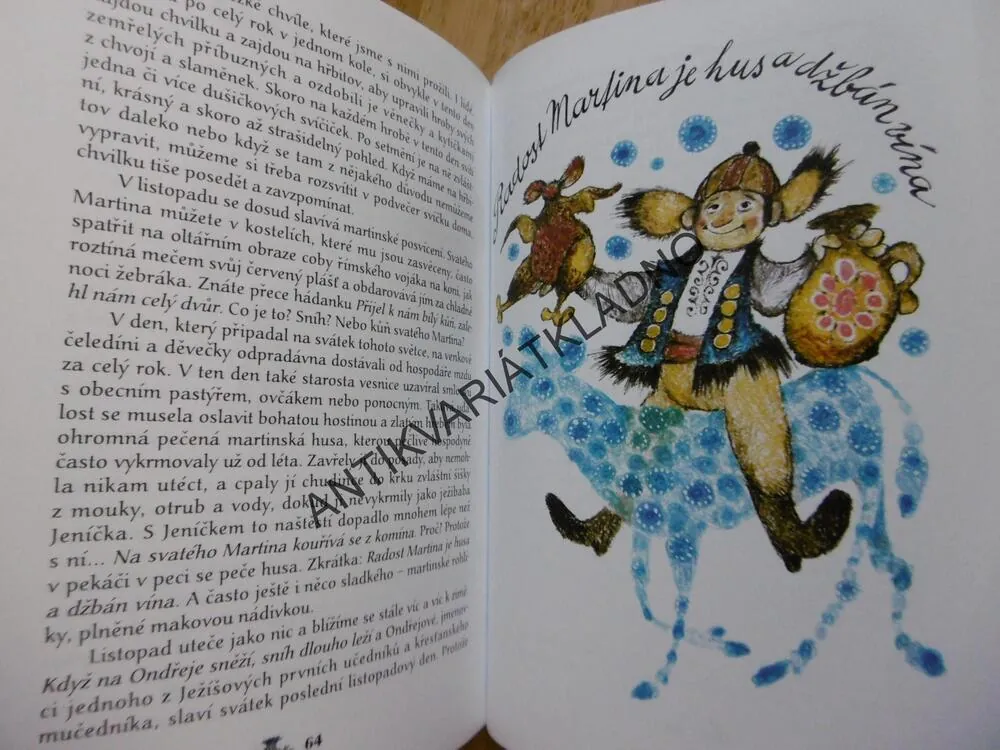 zké chvíle, které jsme s nimi prožili. I lidé
po celý rok v jednom kole, si obvykle v tento den
najdou chvilku a zajdou na hřbitov, aby upravili hroby svých
zemřelých příbuzných a ozdobili je věnečky a kytičkami
z chvojí a slaměnek. Skoro na každém hrobě v tento den svítí
jedna či více dušičkových svíček. Po setmění je na ně zvlášt-
ní, krásný a skoro až strašidelný pohled. Když máme na hřbi-
tov daleko nebo když se tam z nějakého důvodu nemůžeme
vypravit, můžeme si třeba rozsvítit v podvečer svíčku doma,
chvilku tiše posedět a zavzpomínat.
V listopadu se dosud slavívá martinské posvícení. Svatého
Martina můžete v kostelích, které mu jsou zasvěceny, často
spatřit na oltářním obraze coby římského vojáka na koni, jak
roztíná mečem svůj červený plášť a obdarovává jím za chladné
noci žebráka. Znáte přece hádanku Přijel k nám bílý kůň, zale-
hl nám celý dvůr. Co je to? Sníh? Nebo kůň svatého Martina?
V den, který připadal na svátek tohoto světce, na venkově
čeledíni a děvečky odpradávna dostávali od hospodáře mzdu
za celý rok. V ten den také starosta vesnice uzavíral smlouvu
s obecním pastýřem, ovčákem nebo ponocným. Tak
lost se musela oslavit bohatou hostinou a zlatým hřebem byla
ohromná pečená martinská husa, kterou pečlivé hospodyně
často vykrmovaly už od léta. Zavřely ji do posady, aby nemoh-
la nikam utéct, a cpaly jí chudince do krku zvláštní šišky
z mouky, otrub a vody, dokud ji nevykrmily jako ježibaba
Jeníčka. S Jeníčkem to naštěstí dopadlo mnohem lépe než
s ní... Na svatého Martina kouřívá se z komína. Proč? Protože
v pekáči v peci se peče husa. Zkrátka: Radost Martina je husa
a džbán vína. A často ještě i něco sladkého – martinské rohlí-
ky, plněné makovou nádivkou.
Listopad uteče jako nic a blížíme se stále víc a víc k zimě
Když na Ondřeje sněží, sníh dlouho leží a Ondřejové, jmenov-
ci jednoho z Ježíšových prvních učedníků a křesťanského
mučedníka, slaví svátek poslední listopadový den. Protože
64
Radost Martina je husa džbán vína
ANTIKVARIÁTKLADNO